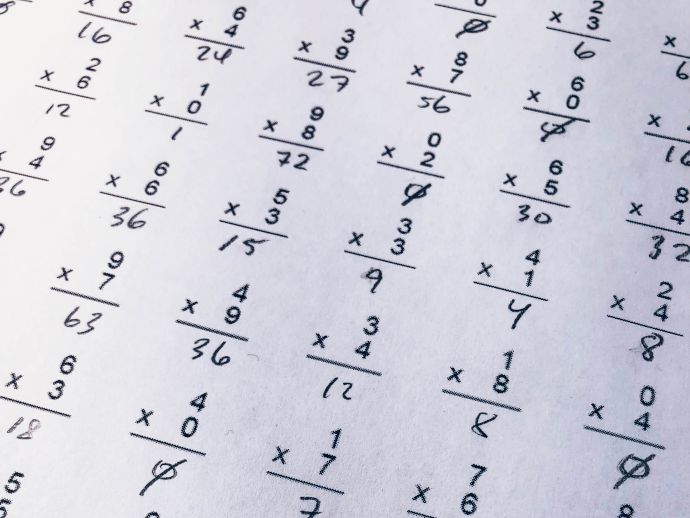 × 8
16
6
× 4
24
3
× 9
27
8
× 7
56
2
× 3
6
2
× 6
12
1
× 0
1
9
× 8
72
0
× 2
0
6
× 0
0
9
4
36
6
× 6
36
5
× 3
15
3
× 3
9
6
× 5
30
8
× 4
32
9
× 7
63
4
× 9
36
3
× 4
12
4
× 1
4
2
× 4
8
6
× 3
18
4
× 0
0
1
× 7
7
1
× 8
8
0
× 4
0
7
× 6
5
8